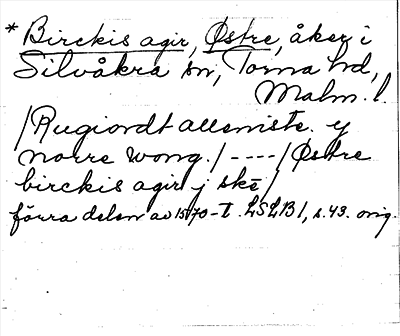 * Birckis agir, Østre, åker i
Silvåkra sn, Torna hd,
Malm. l.
/Rugiordt allemiste. y
norre wong./ ----/Østre
birckis agir j skē/
förra delen av 1570-t. LSLB 1, s. 43. orig.